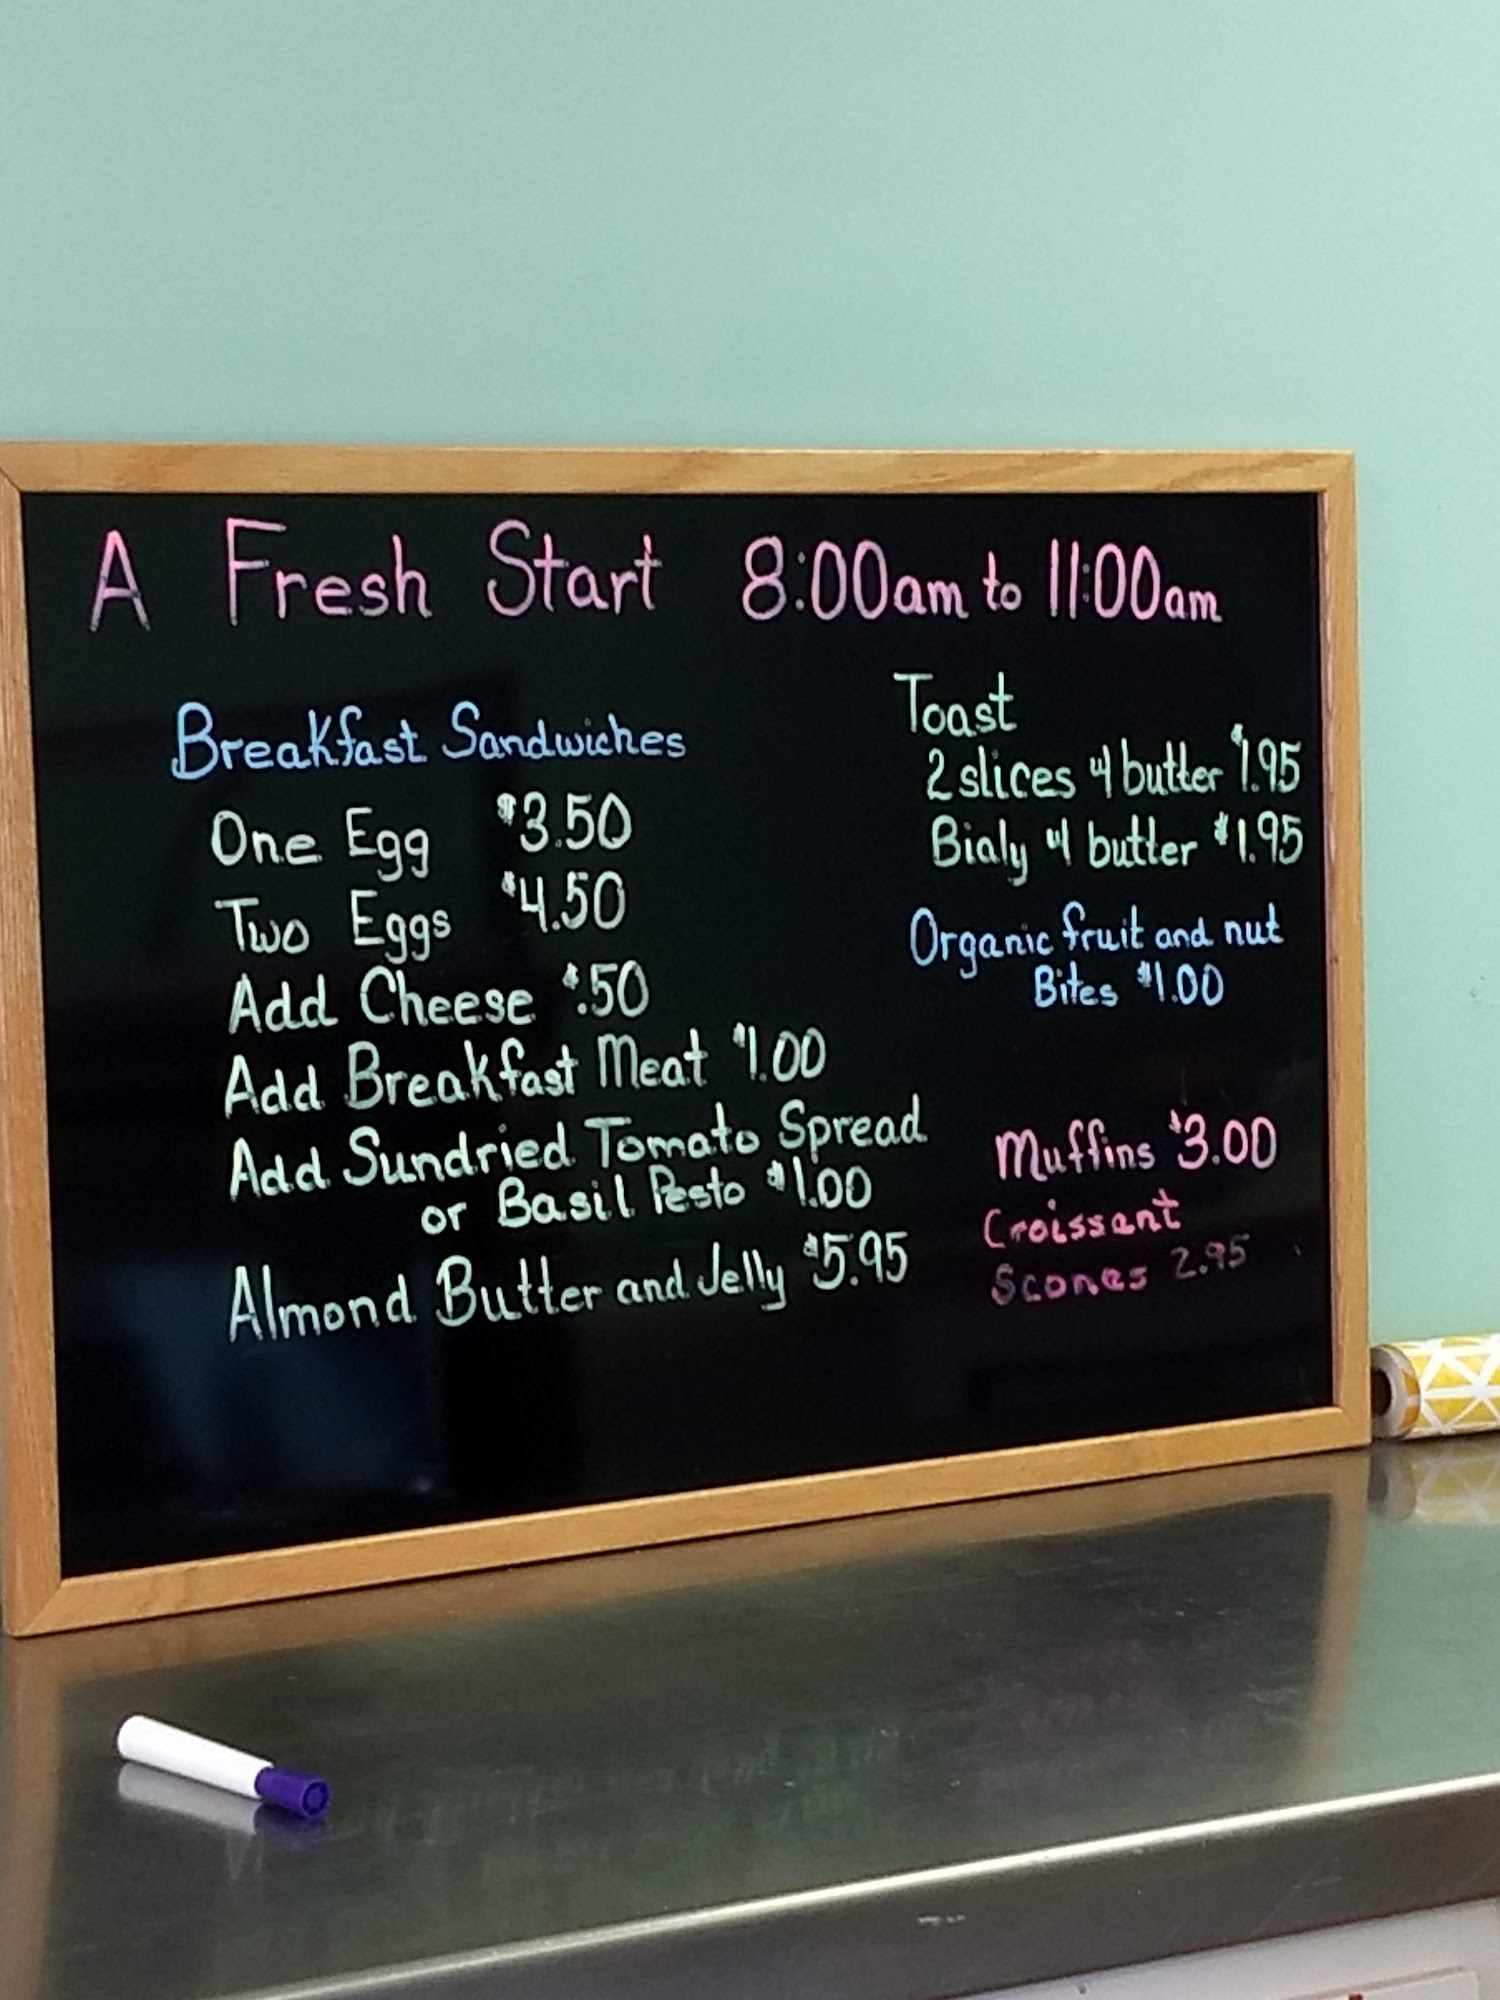 A Fresh Start 8:00am to 11:00am
Breakfast Sandwiches
One Egg $3.50
Two Eggs $4.50
Add Cheese $.50
Add Breakfast Meat $1.00
Add Sundried Tomato Spread
or Basil Pesto $1.00
Almond Butter and Jelly $5.95
Toast
2 slices w/ butter $1.95
Bialy w/ butter $1.95
Organic fruit and nut
Bites $1.00
Muffins $3.00
Croissant
Scones 2.95